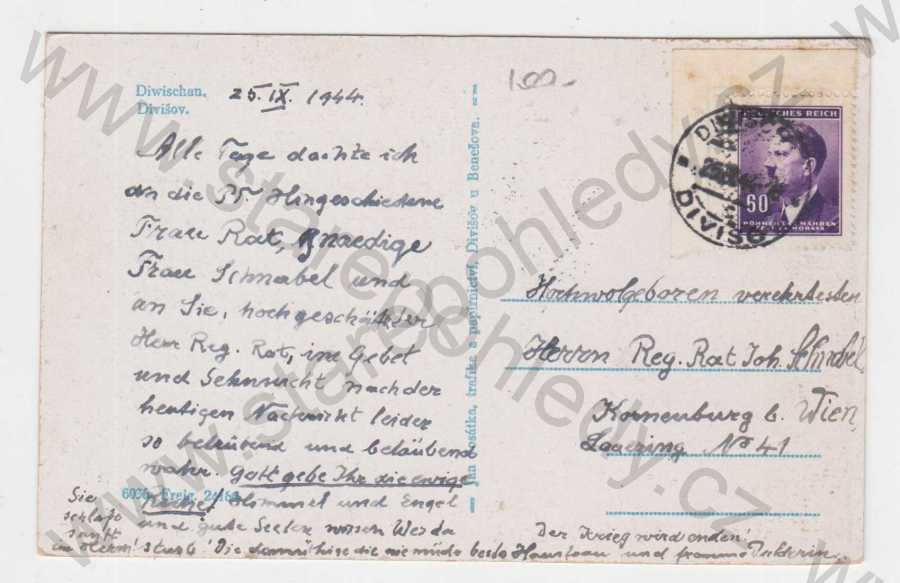 Diwischau.
Divišov.
25. IX. 1944.
Alle Tage dachte ich
an die Hingeschiedene
Frau Rat, Gnaedige
Frau Schnabel und
an Sie, hochgeschätzter
Herr Reg. Rat, im Gebet
und Sehnsucht nach der
heutigen Nachricht leider
so betrübend und betäubend
wahr. Gott gebe Ihr die ewige
Himmel und Engel
und gute Seelen
Sie
schlafe
sanft
im Herrn!
Die demütige die nie müde
und fromme
Der Krieg wird enden!
Jan trafika a papírnictví, Divišov u Benešova.
100-
DEUTSCHES REICH
60
BÖHMEN U. MÄHREN
ČECHY A MORAVA
DIVIŠOV
Hochwolgeboren verehrtesten
Herrn Reg. Rat Joh. Schnabel
Korneuburg b. Wien,
No 41
www.starepohledy.cz